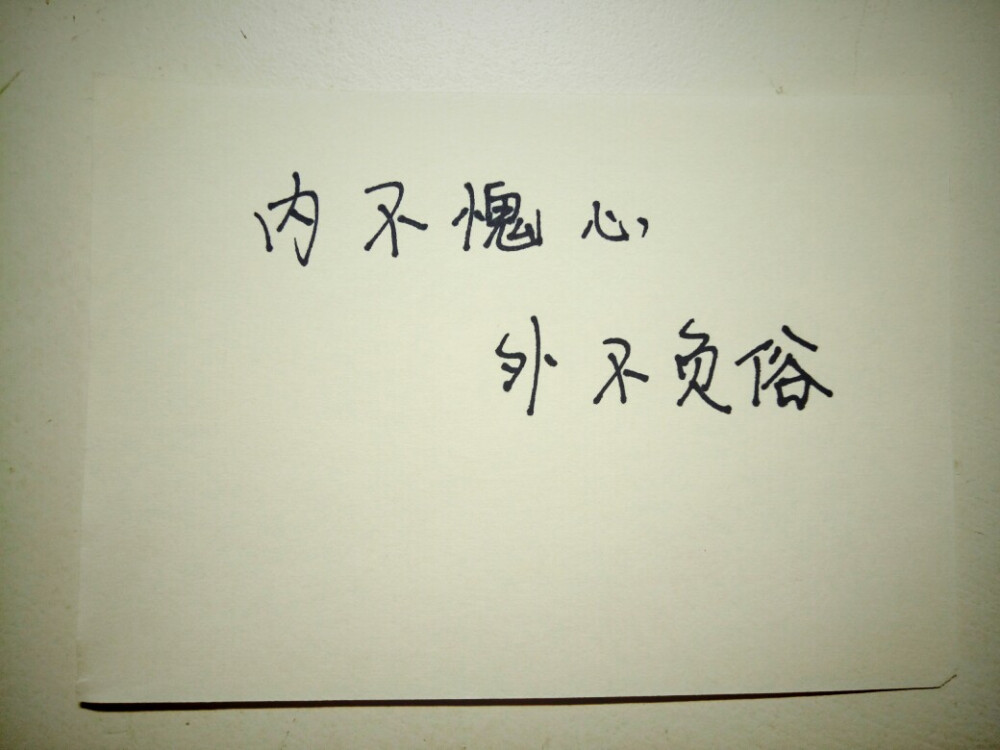 内不愧心
外不负俗